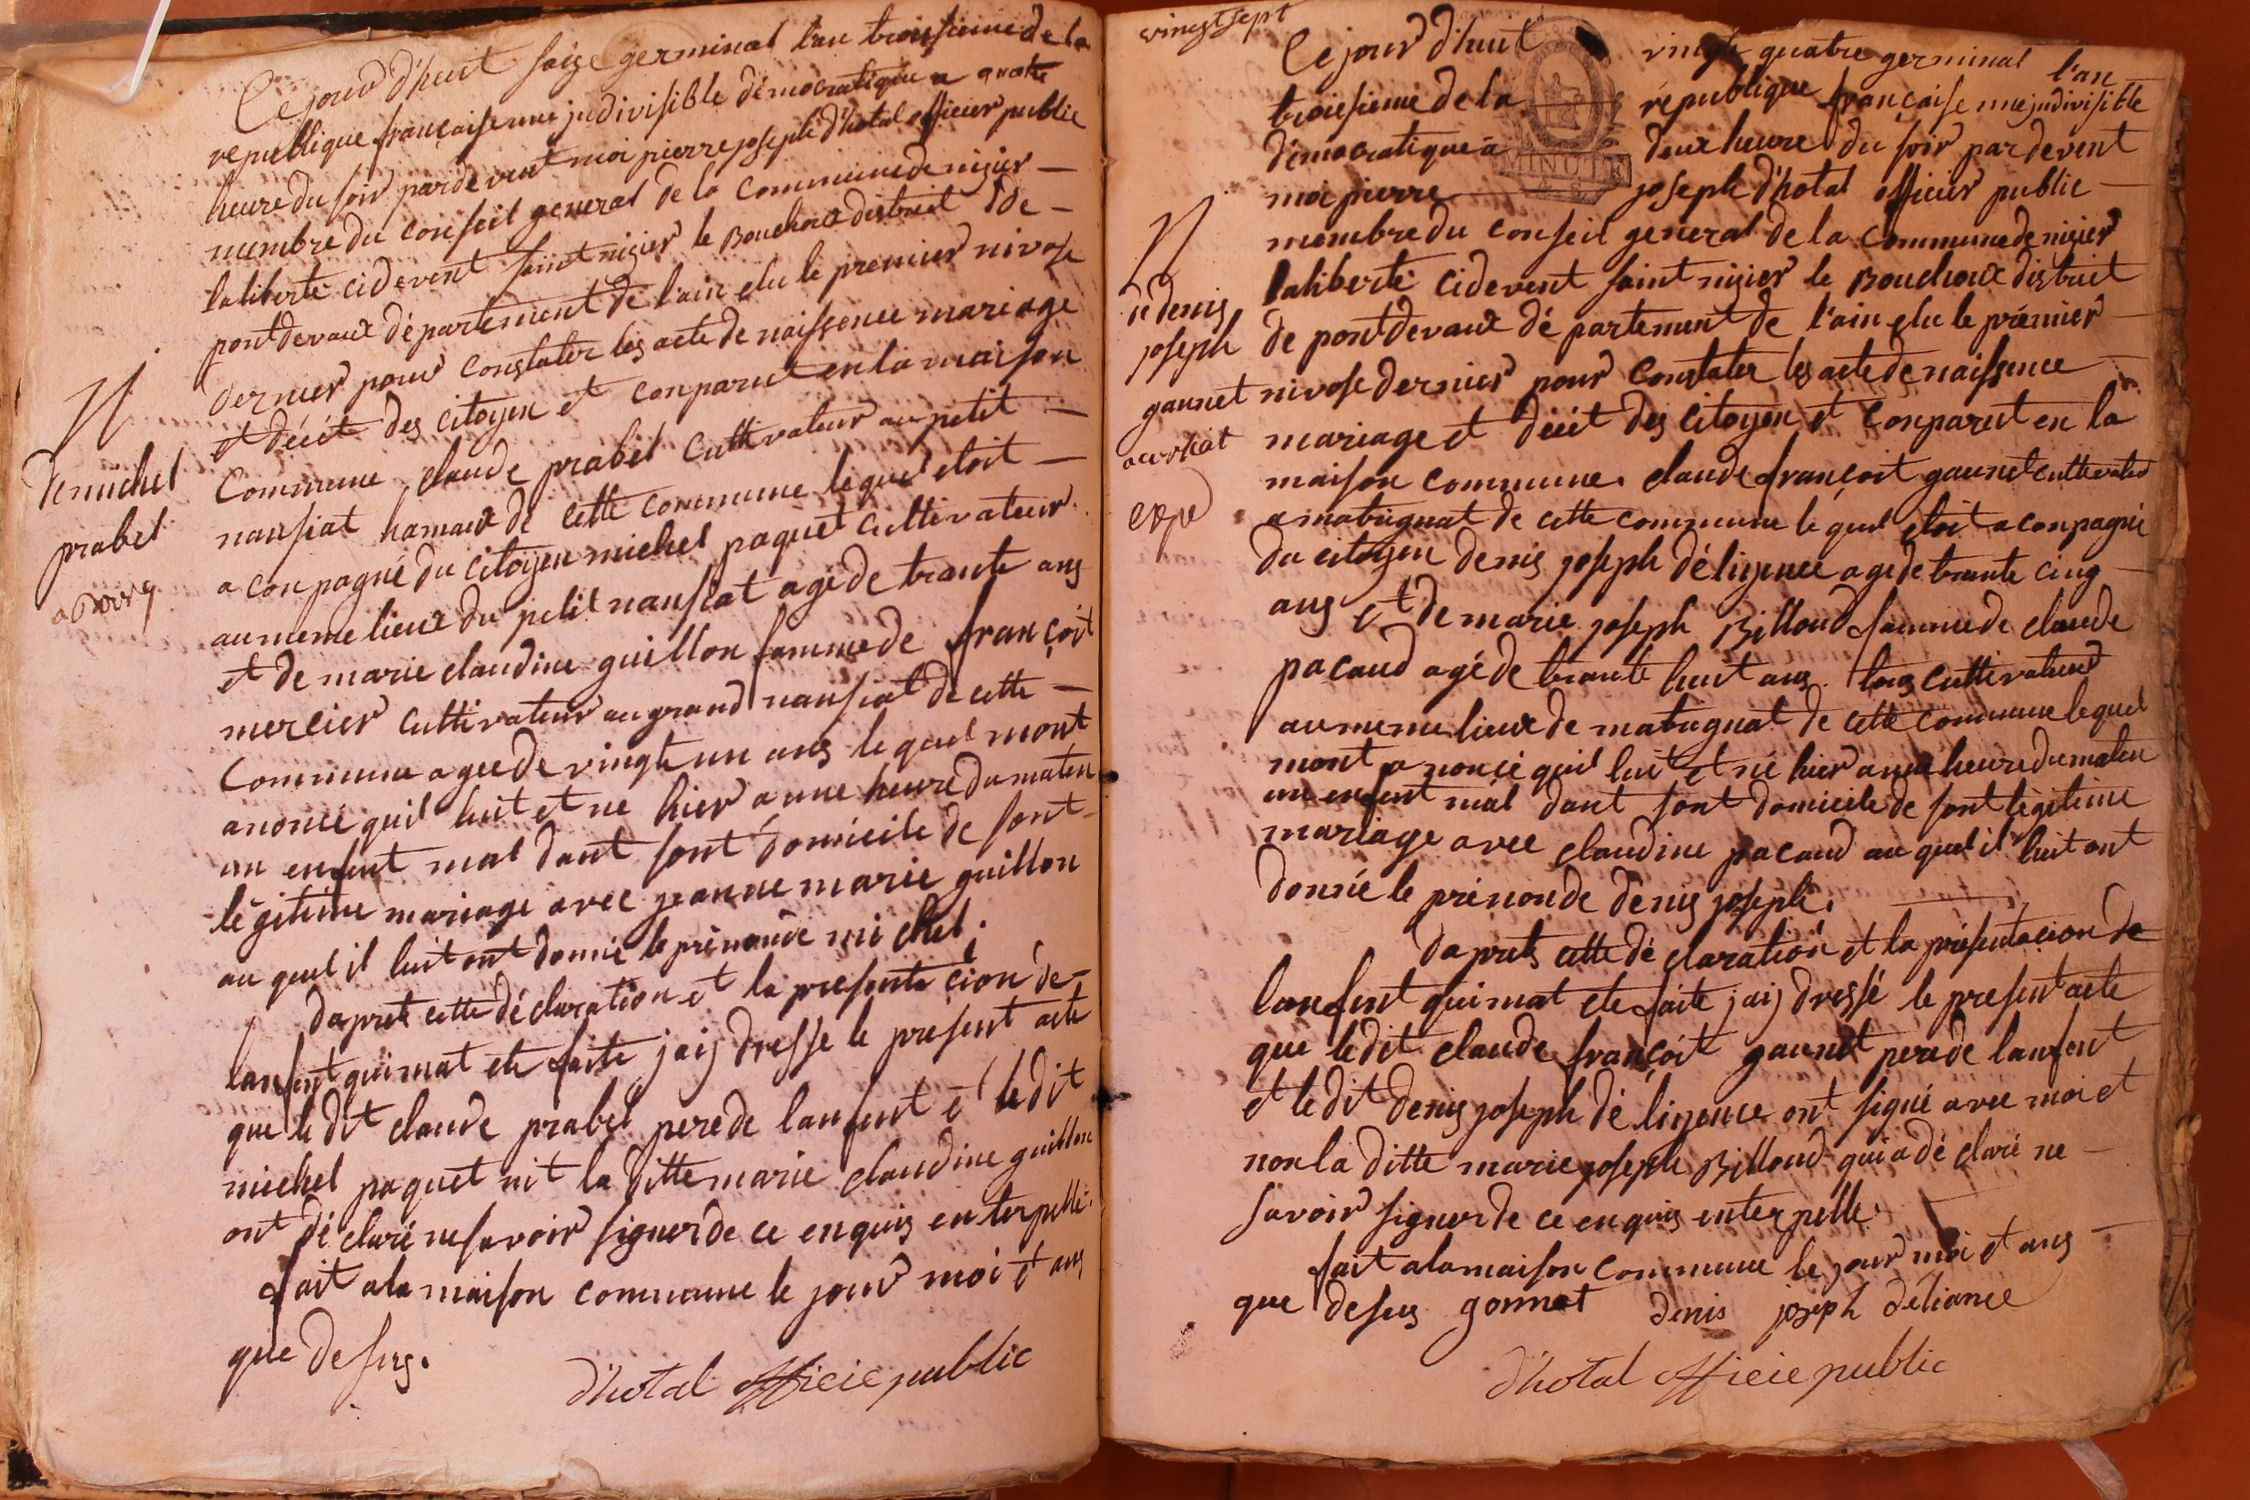 Cejourd'huit saize germinal l'an troisiemede la
republique françaiseune judivisible démocratique a quatre
heure du soir pardevent moi pierre joseph d'hotal officier public
membre du conseil general de la communede nisier —
laliberté cidevent saint nisier le Bouchoux district de —
pontdevaux département de l'ain elu le premier nivose
dernier pour constater les acte de naissence mariage
et décit des citoyen et conparut en la maison
N
de michel
prabel
a Bourg
commune claude prabel cultivateur au petit —
nansiat hamaux de cette commune le quel etoit —
a conpagné du citoyen michel paquet cultivateur
au meme lieux du petit nansiat agé de trante ans
et de marie claudine guillon fammede françoit
mercier cultivateur au grand nansiat de cette —
commune agée de vingt un ans le quel mont
anoncé quil luit et ne hier a une heure du maten
un enfent mal dant sont domicile de sont
légitime mariage avec jeanne marie guillon
au quel il luit ont donné le prénomde michel.
daprets cette déclaration et la presentacion de —
lanfent qui mat ete faite jaij dresse le present acte
que le dit claude prabel perede lanfent et le dit
michel paquet nit la ditte marie claudine guillon
ont déclaré ne savoir signer de ce enquis enterpellé.
fait a la maison commune le jour moi et ans
que desus.
d'hotal officie public
vingt sept
Cejour d'huit vingt quatre germinal l'an
troisieme de la république française une judivisible
démocratique a deux heure du soir pardevent
MINUTE
moi pierre joseph d'hotal officier public —
membre du conseil general de la communede nisier
laliberté cidevent saint nisier le Bouchoux district
de pontdevaux département de l'ain elu le prémier
nivose dernier pour constater les acte de naissence
mariage et décit des citoyen et conparut en la
N
de denis
joseph
gaunet
expé
maison commune. claude françoit gaunet cultivateur
a matrignat de cette commune le quel etoit a conpagné
du citoyen denis joseph déligence agé de trante cinq
ans et de marie joseph Billoud fammede claude
pacaud agé de trante huit ans tous cultivateur
au meme lieux de matrignat de cette commune le quel
mont a noncé quil luit et né hier a une heure du maten
un enfent mal dant sont domicile de sont légitime
mariage avec claudine pacaud au quel il luit ont
donné le prénon de denis joseph.
daprets cette déclaration et la présentacion de
lanfent qui mat ete faite jaij dressé le present acte
que ledit claude françoit gaunet perede lanfent
et le dit denis joseph déligence ont signé avec moi et
non la ditte marie joseph Billoud qui a déclaré ne —
savoir signer de ce enquis enterpelle.
fait a la maison commune le jour moi et ans —
que desus gonnet denis joseph déliance
d'hotal officie public